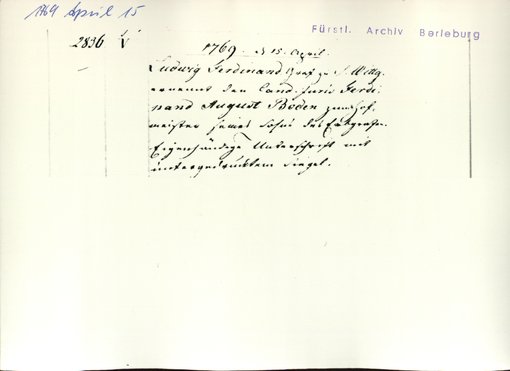 1769 April 15
Fürstl. Archiv Berleburg
2836 V
1769. d 15. April.
Ludwig Ferdinand Graf zu S. Wittg.
ernennt den Cand. juris Ferdi-
nand August Boden zum Hof-
meister seines Sohnes des Erbgrafen.
Eigenhändige Unterschrift mit
untergedrucktem Siegel.